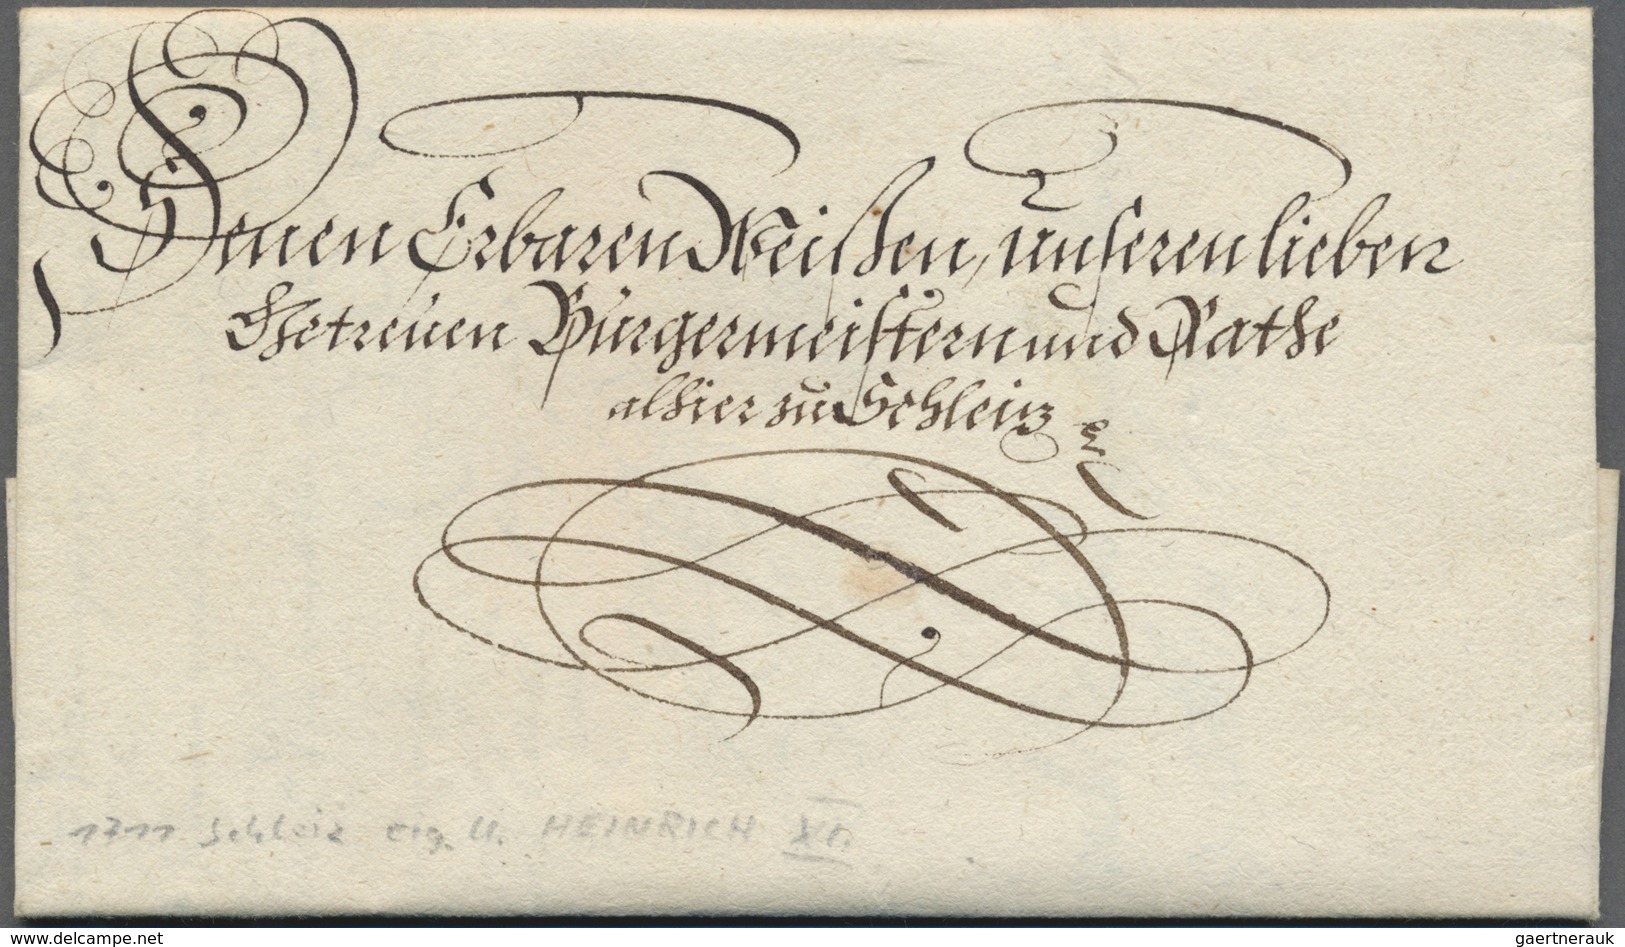 Denen Erbaren Weisen, unseren lieben
Getreuen Bürgermeistern und Rathe
alhier zu Schleiz
1711 Schleiz eig. U. HEINRICH
www.delcampe.net
gaertnerauk